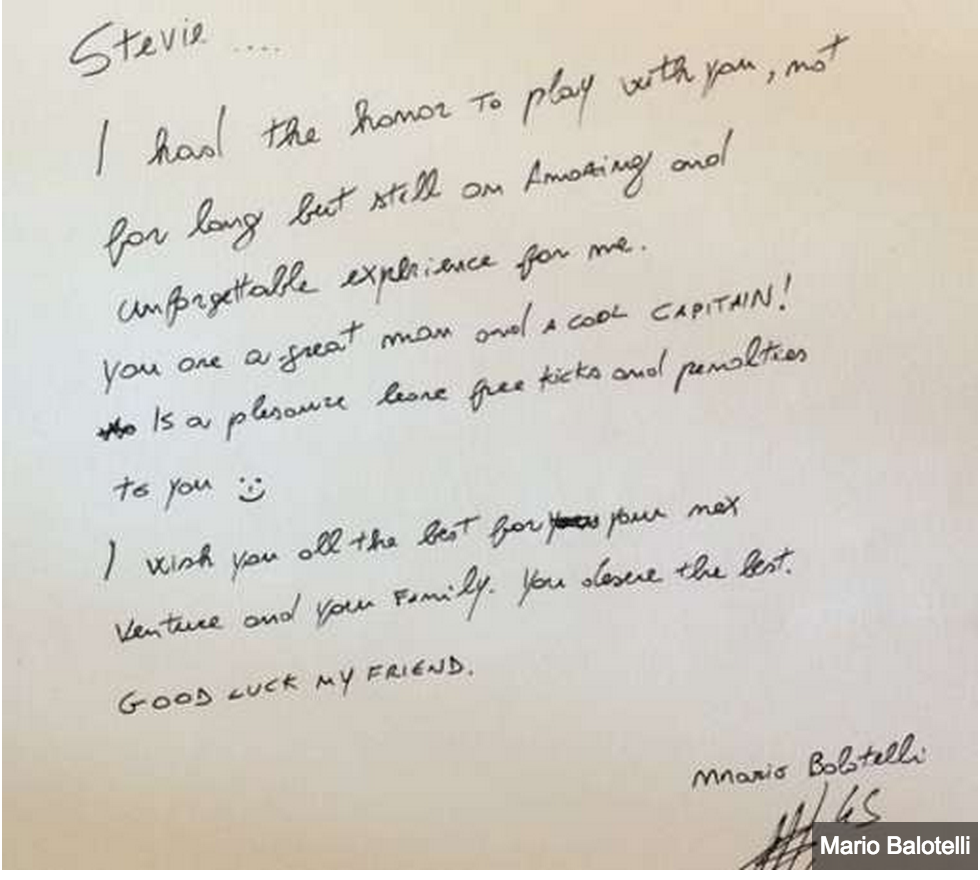 Stevie ....
I had the honor to play with you, not
for long but still an Amazing and
unforgettable experience for me.
You are a great man and A COOL CAPITAIN!
Is a plesaure leave free kicks and penalties
to you :)
I wish you all the best for your nex
Venture and your Family. You deserve the best.
GOOD LUCK MY FRIEND.
Mario Balotelli
45
Mario Balotelli